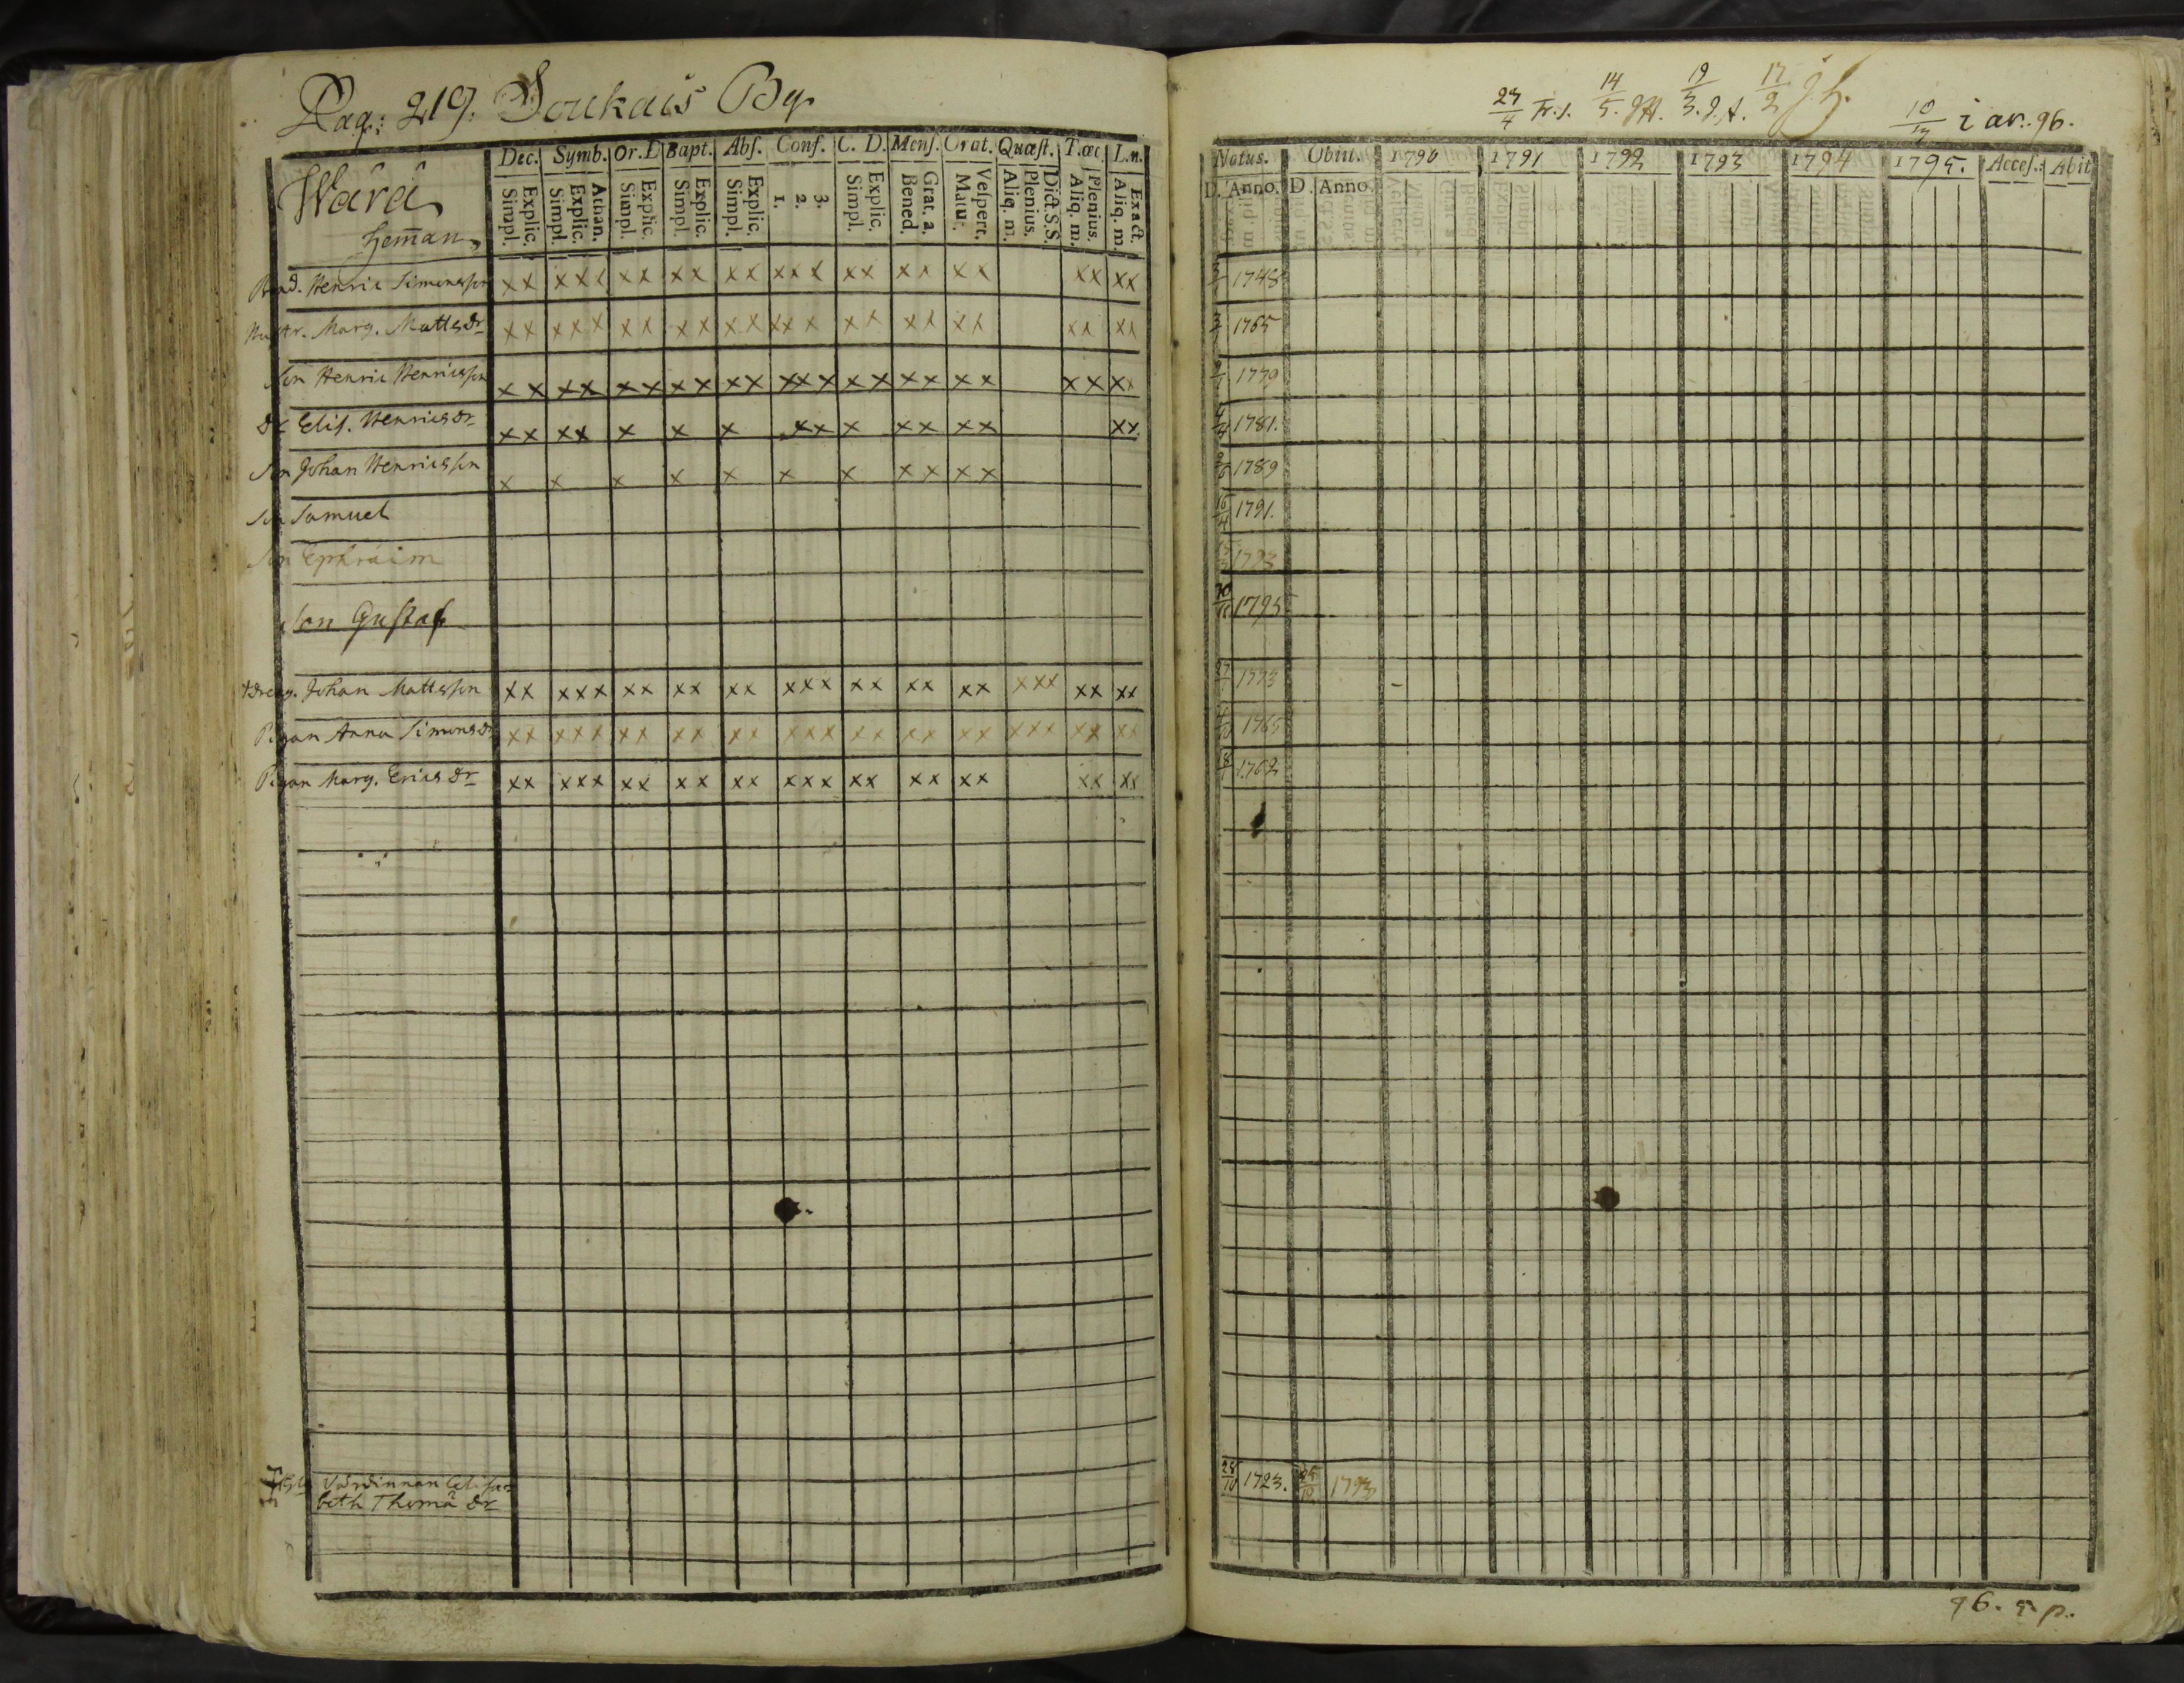 Pag: 219. Soukais By.
Wärä
Heman
Dec. Symb. Or. D. Bapt. Abs. Conf. C. D. Mens. Orat. Quæst. T. œc. L. n.
Explic. Simpl. Athan. Explic. Simpl. Explic. Simpl. Explic. Simpl. Explic. Simpl. 3. 2. 1. Explic. Simpl. Grat. a. Bened. Vespert. Matut. Dict. S.S. Plenius. Aliq. m. Plenius. Aliq. m. Exact. Aliq. m.
Bond. Henric Simonsson xx xxx xx xx xx xxx xx xx xx xx xx
Hustr. Marg. Mattsdr xx xxx xx xx xx xxx xx xx xx xx xx
Son Henric Henricsson xx xx xx xx xx xxx xx xx xx xx xx
dr Elis. Henricsdr xx xx x x x xx x xx xx xx
Son Johan Henricsson x x x x x x x xx xx
Son Samuel
Son Ephraim
Son Gustaf
dreng. Johan Mattsson xx xxx xx xx xx xxx xx xx xx xxx xx xx
Pigan Anna Simonsdr xx xxx xx xx xx xxx xx xx xx xxx xx xx
Pigan Marg. Ericsdr xx xxx xx xx xx xxx xx xx xx xx xx
Värdinnan Elisa-
beth Thomæ dr
14/5. 19/3. 17/2 i av. 96.
Natus. Obiit. 1790 1791 1792 1793 1794 1795. Acces. Abit
D. Anno. D. Anno.
1748
1765
1779
1781.
1789
16/4 1791.
1793
1795
1773
1765
1762
28/10 1723. 1793
96. s. p.